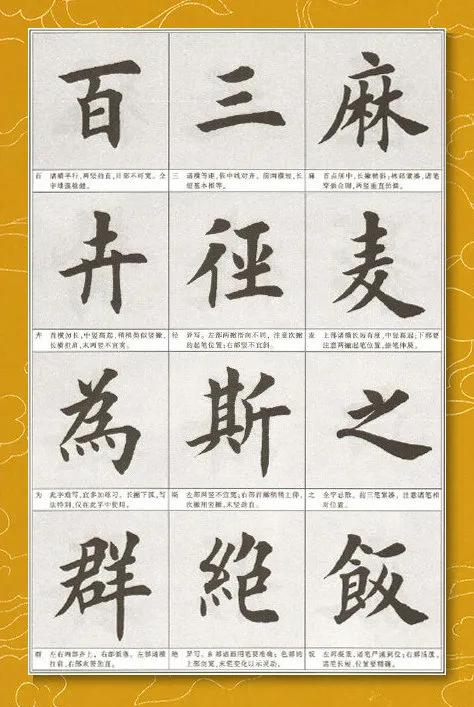 百 三 麻
百 诸横平行，两竖劲直，日部不可宽。全
字雄强稳健。
三 诸横等距，依中线对齐。前两横短，长
短基本相等。
麻 首点居中，长撇稍斜；林部紧凑，诸笔
穿插合理，两竖垂直劲挺。
卉 径 麦
卉 首横勿长，中竖高起，稍稍类似竖撇，
长横担肩，末两竖不宜宽。
径 异写。左部两撇指向不同，注意次撇
的起笔位置；右部竖不宜斜。
麦 上部诸横长短有度，中竖高起；下部要
注意两撇起笔位置，捺笔伸展。
為 斯 之
为 此字难写，宜多加练习。长撇下弧，写
法特别，仅在此字中使用。
斯 左部两竖不宜宽；右部首撇稍稍上仰，
次撇用竖撇，末竖劲直。
之 全字忌散。前三笔紧凑，注意诸笔相
对位置。
群 絶 飯
群 左右两部齐上。右部低落。左部诸横
抗肩，右部末竖劲直。
绝 异写。糸部诸画用笔要准确；色部的
上部勿宽，末笔变化以示灵动。
饭 左部凝重，诸笔严谨到位；右部活泼，
诸笔长短、位置要精确。